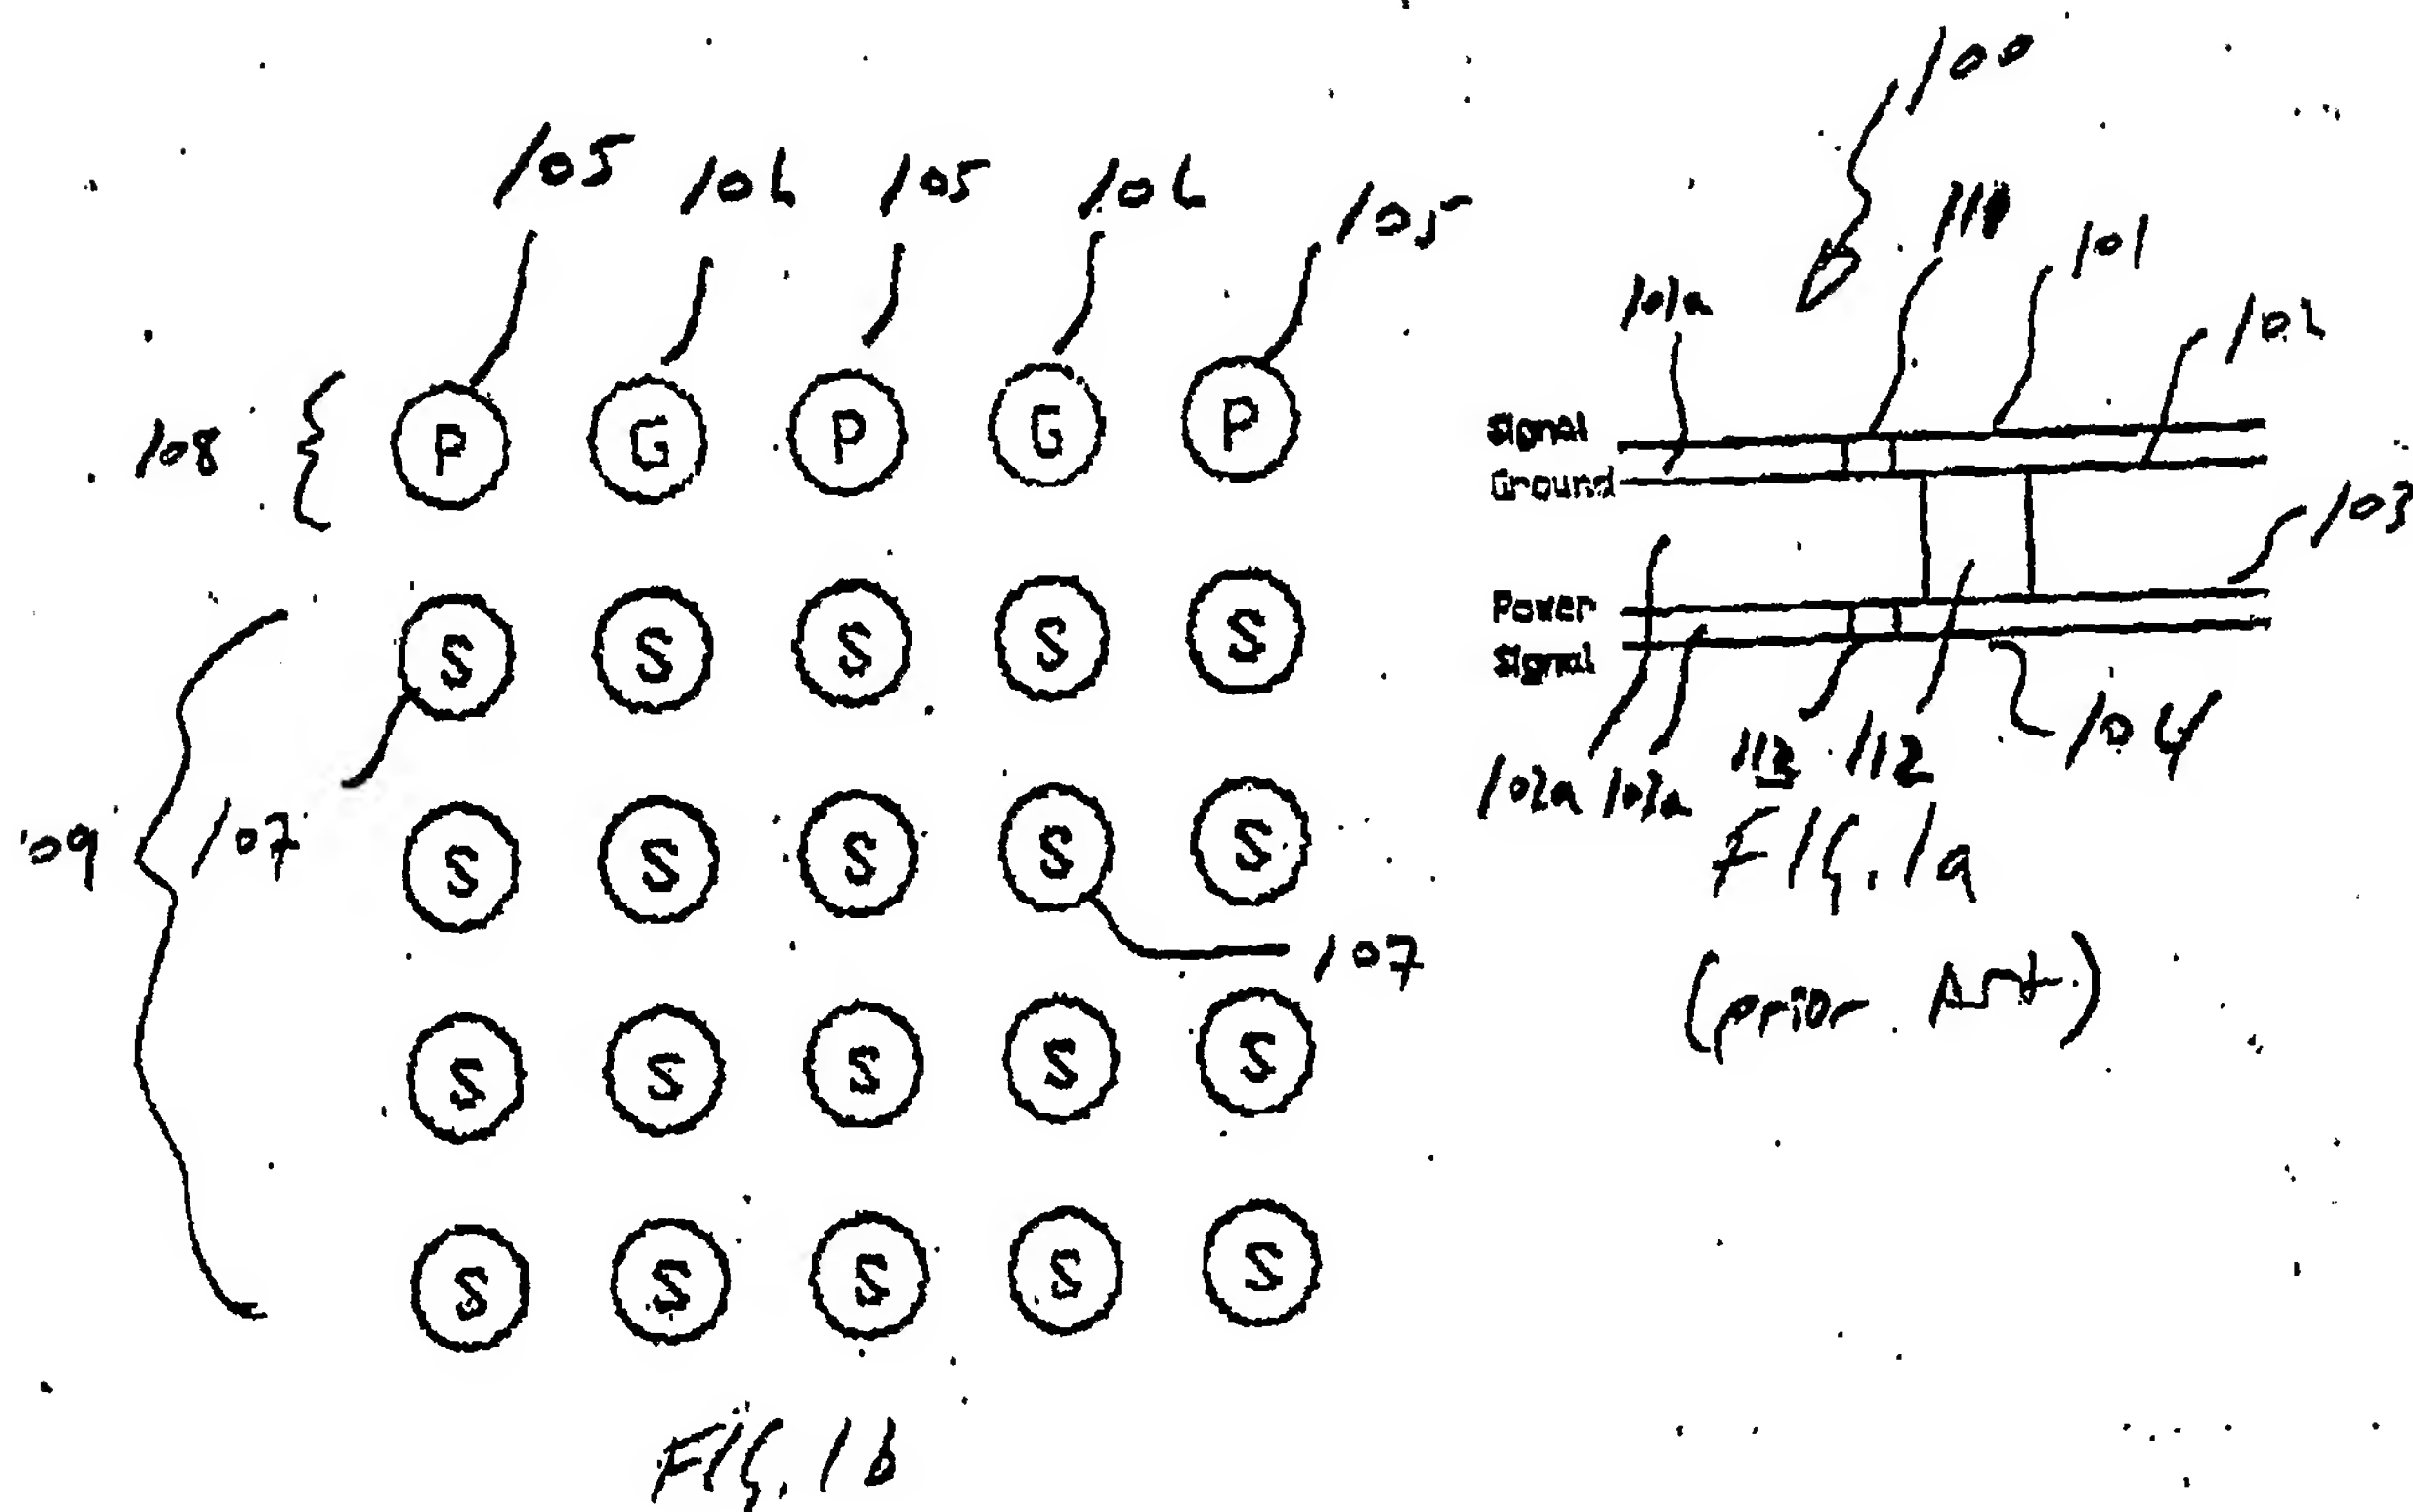 105 106 105 106 105
108
P G P G P
S S S S S
109 107
S S S S S
107
S S S S S
S S S S S
FIG. 1b
100
101a 101
102
Signal
Ground
103
Power
Signal
104
102a 113 112
FIG. 1a
(prior Art)